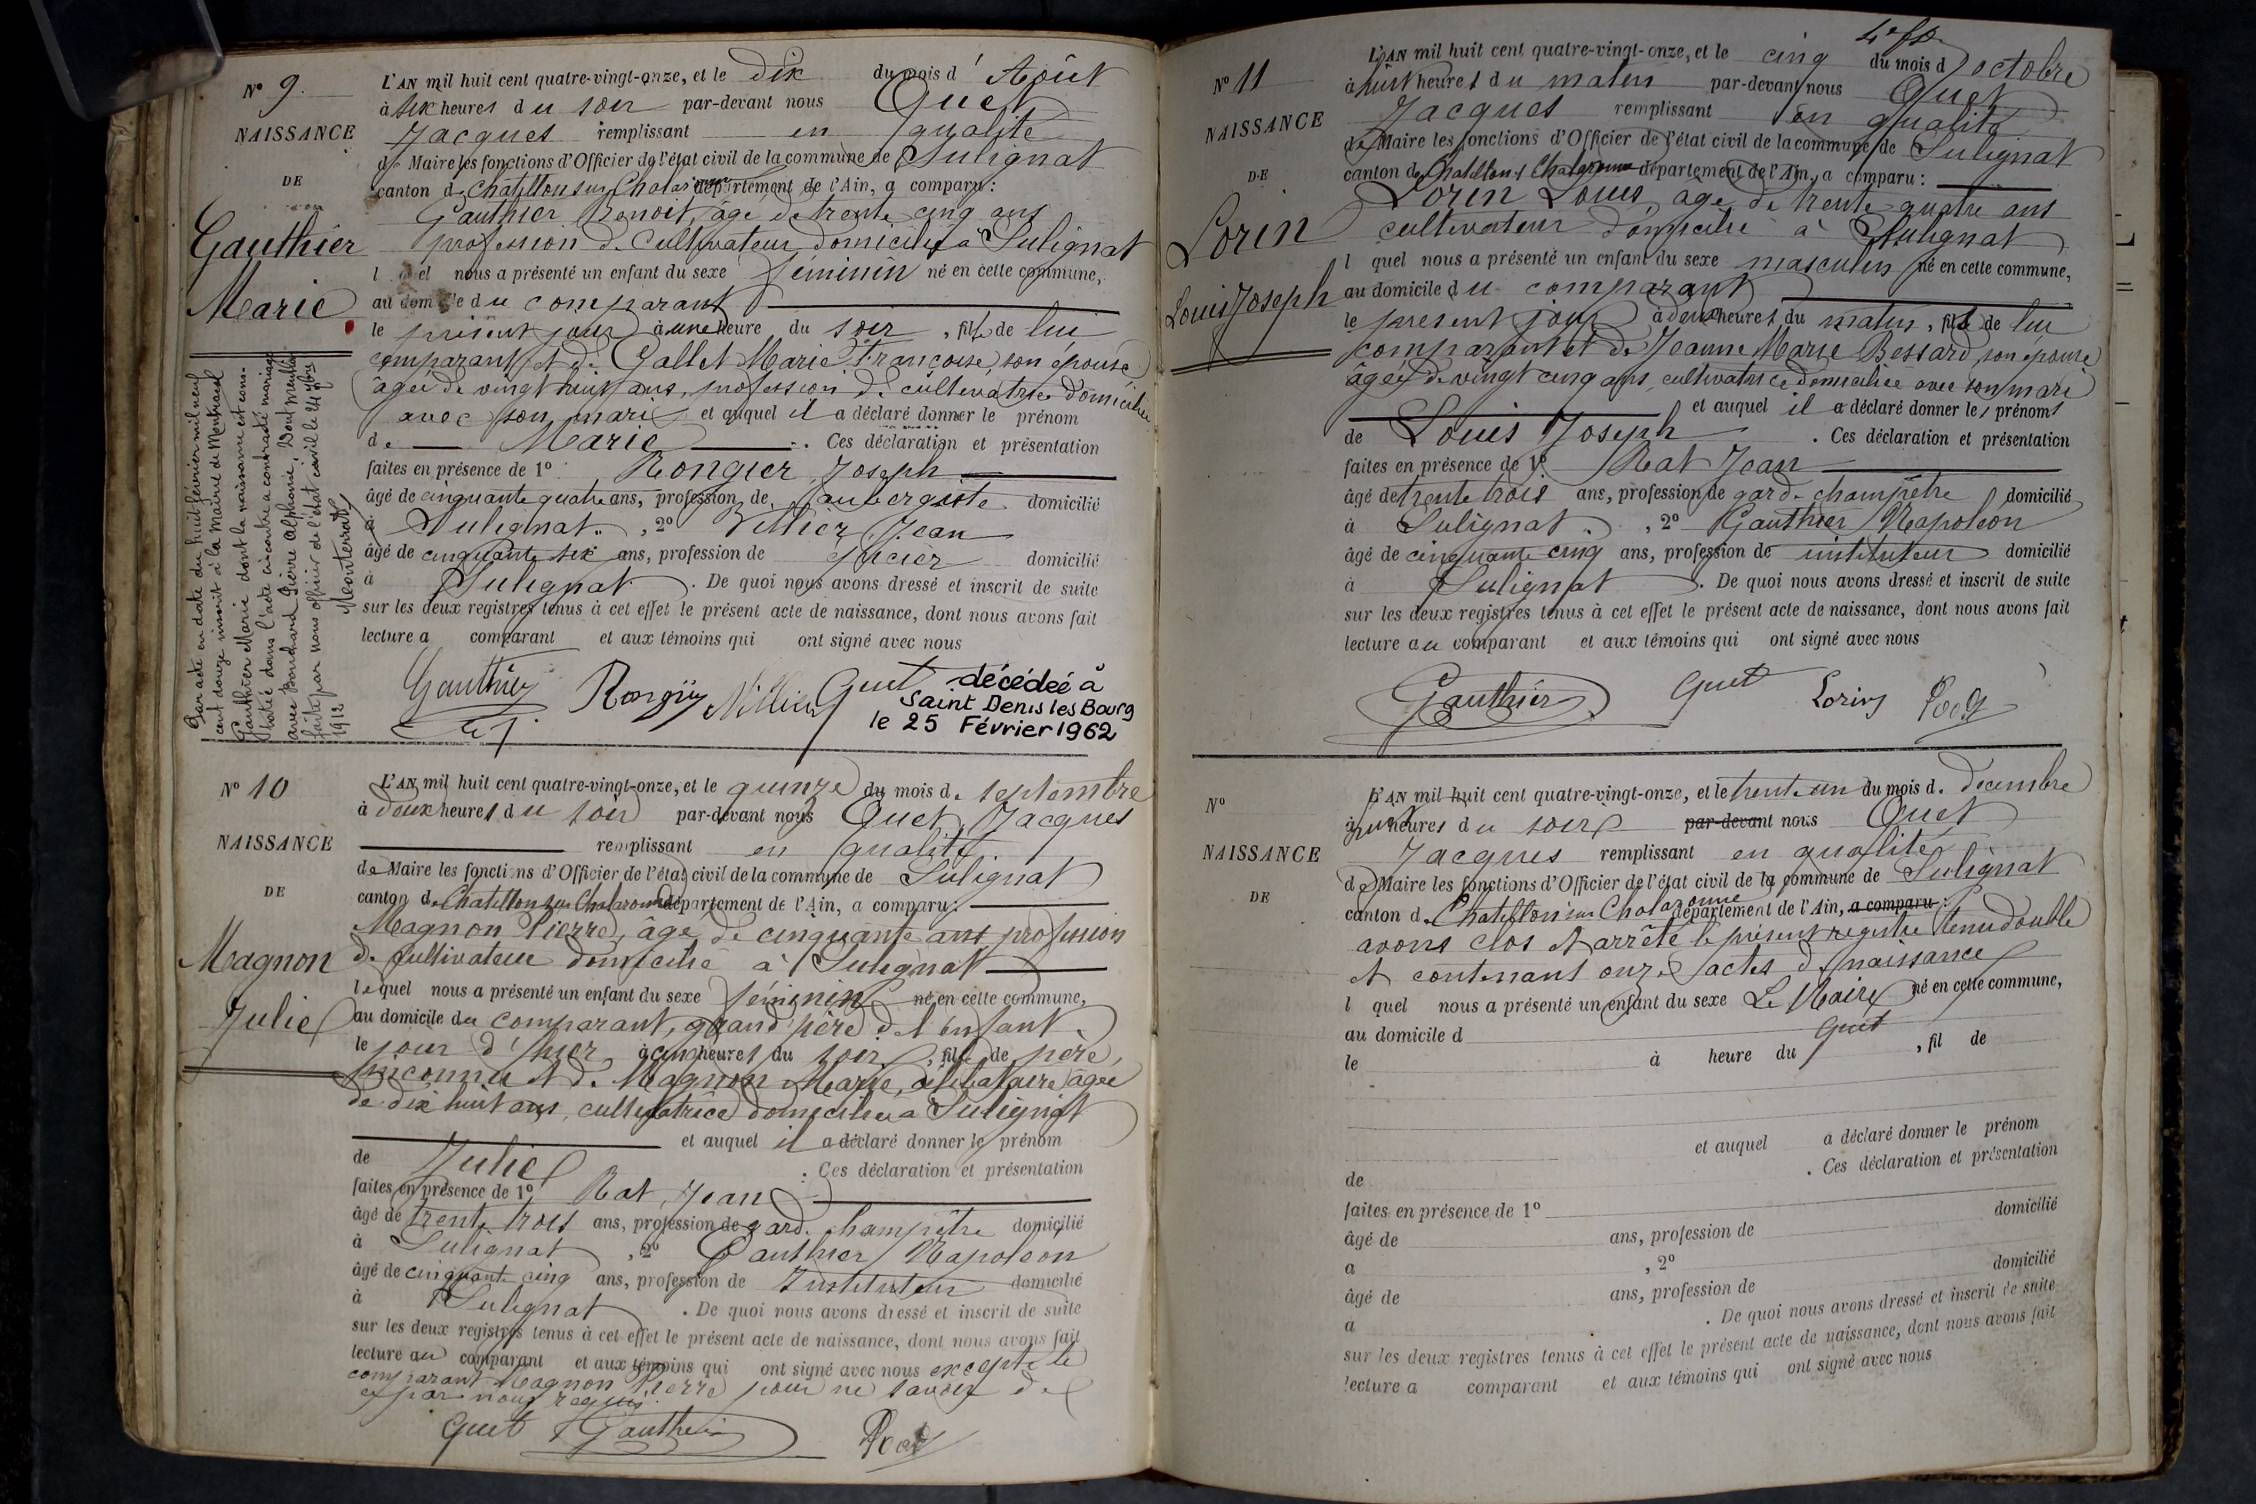 N° 9.
NAISSANCE
DE
Gauthier
Marie
L'AN mil huit cent quatre-vingt-onze, et le dix du mois d'Août
à six heures du soir par-devant nous Quet
Jacques remplissant en qualité
de Maire les fonctions d'Officier de l'état civil de la commune de Sulignat
canton de Chatillon sur Chalaronne département de l'Ain, a comparu :
Gauthier Benoit, âgé de trente cinq ans
profession de cultivateur domicilié à Sulignat
lequel nous a présenté un enfant du sexe féminin né en cette commune,
au domicile du comparant
le présent jour à une heure du soir, fille de lui
comparant et de Gallet Marie Françoise, son épouse
âgée de vingt huit ans, profession de cultivatrice domiciliée
avec son mari et auquel il a déclaré donner le prénom
de Marie. Ces déclaration et présentation
faites en présence de 1° Rongier Joseph
âgé de cinquante quatre ans, profession de aubergiste domicilié
à Sulignat, 2° Villier Jean
âgé de cinquante six ans, profession de domicilié
à Sulignat. De quoi nous avons dressé et inscrit de suite
sur les deux registres tenus à cet effet le présent acte de naissance, dont nous avons fait
lecture a comparant et aux témoins qui ont signé avec nous
Gauthier Rongier Villier Quet
décédée à
Saint Denis les Bourg
le 25 Février 1962
Par acte en date du huit février mil neuf
cent douze inscrit à la Mairie de Montracol
Gauthier Marie dont la naissance est cons-
tatée dans l'acte ci-contre a contracté mariage
avec Bouchard Pierre Alphonse, Dont mention
faite par nous officier de l'état civil le 24
1912
Monterrat
N° 10
NAISSANCE
DE
Magnon
Julie
L'AN mil huit cent quatre-vingt-onze, et le quinze du mois de septembre
à deux heures du soir par-devant nous Quet Jacques
remplissant en qualité
de Maire les fonctions d'Officier de l'état civil de la commune de Sulignat
canton de Chatillon sur Chalaronne département de l'Ain, a comparu :
Magnon Pierre, âgé de cinquante ans profession
de cultivateur domicilié à Sulignat
lequel nous a présenté un enfant du sexe féminin né en cette commune,
au domicile du comparant, grand père de l'enfant
le jour d'hier à cinq heures du soir, fille de père
inconnu et de Magnon Marie, célibataire âgée
de dix huit ans, cultivatrice domiciliée à Sulignat
et auquel il a déclaré donner le prénom
de Julie. Ces déclaration et présentation
faites en présence de 1° Rat Jean
âgé de trente trois ans, profession de garde champêtre domicilié
à Sulignat, 2° Gauthier Napoléon
âgé de cinquante cinq ans, profession de Instituteur domicilié
à Sulignat. De quoi nous avons dressé et inscrit de suite
sur les deux registres tenus à cet effet le présent acte de naissance, dont nous avons fait
lecture au comparant et aux témoins qui ont signé avec nous excepté le
comparant Magnon Pierre pour ne savoir de
ce par nous requis.
Quet Gauthier Rat
N° 11
NAISSANCE
DE
Lorin
Louis Joseph
L'AN mil huit cent quatre-vingt-onze, et le cinq du mois d octobre
à huit heures du matin par-devant nous Quet
Jacques remplissant en qualité
de Maire les fonctions d'Officier de l'état civil de la commune de Sulignat
canton de Chatillon s Chalaronne département de l'Ain, a comparu :
Lorin Louis, âgé de trente-quatre ans
cultivateur domicilié à Sulignat
l quel nous a présenté un enfant du sexe masculin né en cette commune,
au domicile du comparant
le présent jour à deux heures du matin, fils de lui
comparant et de Jeanne Marie Bessard, son épouse
âgée de vingt cinq ans, cultivatrice domiciliée avec son mari
et auquel il a déclaré donner les prénoms
de Louis Joseph. Ces déclaration et présentation
faites en présence de 1° Rat Jean
âgé de trente trois ans, profession de garde champêtre domicilié
à Sulignat, 2° Gauthier Napoléon
âgé de cinquante cinq ans, profession de instituteur domicilié
à Sulignat. De quoi nous avons dressé et inscrit de suite
sur les deux registres tenus à cet effet le présent acte de naissance, dont nous avons fait
lecture au comparant et aux témoins qui ont signé avec nous
Gauthier Quet Lorin Rat
N°
NAISSANCE
DE
L'AN mil huit cent quatre-vingt-onze, et le trente un du mois de décembre
à huit heures du soir par-devant nous Quet
Jacques remplissant en qualité
de Maire les fonctions d'Officier de l'état civil de la commune de Sulignat
canton de Chatillon sur Chalaronne département de l'Ain, a comparu :
avons clos et arrêté le présent registre tenu double
et contenant onze actes de naissance
l quel nous a présenté un enfant du sexe Le Maire né en cette commune,
au domicile d Quet
le à heure du , fil de
et auquel a déclaré donner le prénom
de . Ces déclaration et présentation
faites en présence de 1°
âgé de ans, profession de domicilié
a , 2°
âgé de ans, profession de domicilié
a . De quoi nous avons dressé et inscrit de suite
sur les deux registres tenus à cet effet le présent acte de naissance, dont nous avons fait
lecture a comparant et aux témoins qui ont signé avec nous